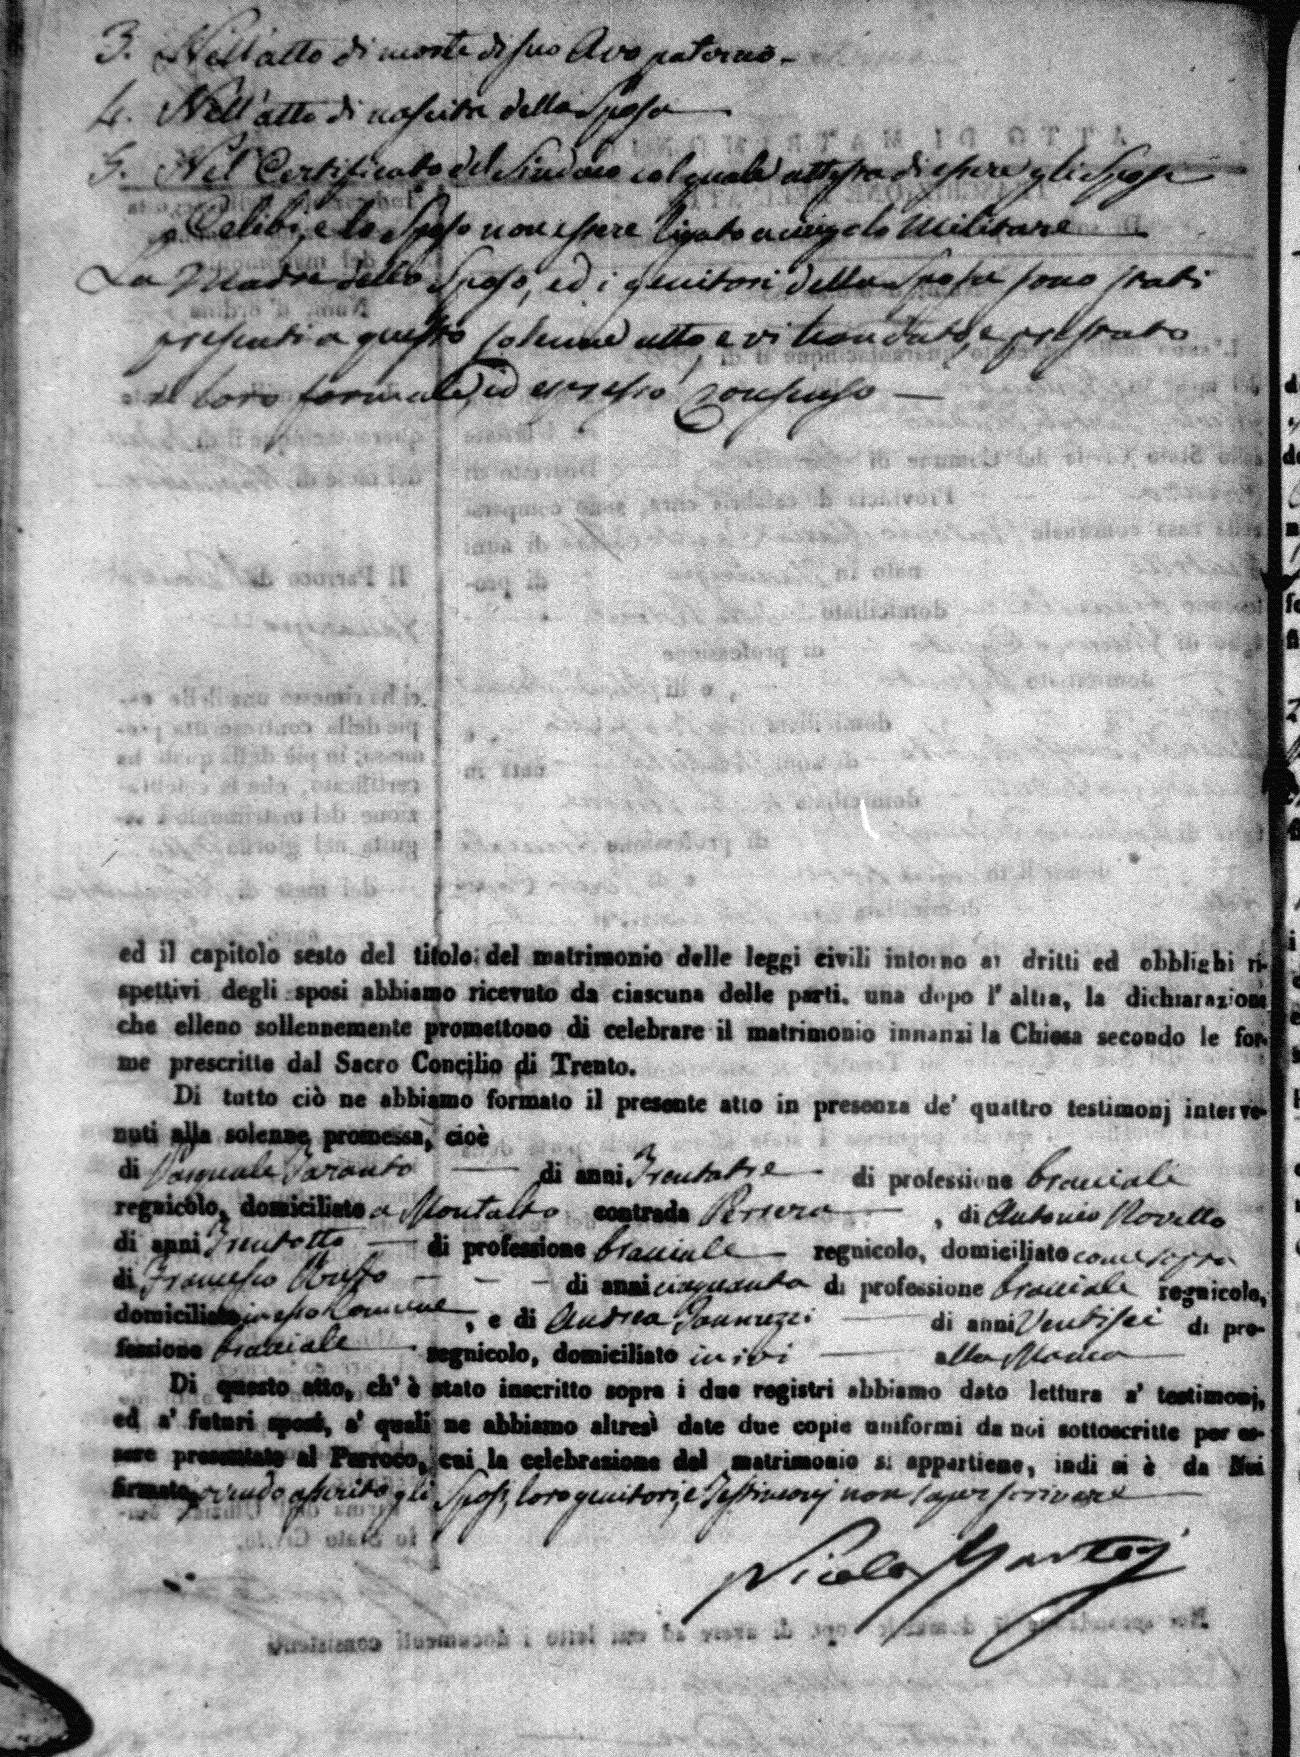 3. Nell'atto di morte di suo Avo paterno.
4. Nell'atto di nascita della Sposa
5. Nel Certificato del Sindaco col quale attesta di essere gli Sposi
Celibi, e lo Sposo non essere ligato a vincolo Militare
La Madre dello Sposo, ed i genitori della Sposa sono stati
presenti a questo solenne atto e vi han dato, e prestato
il loro formale, ed espresso Consenso
ed il capitolo sesto del titolo del matrimonio delle leggi civili intorno ai dritti ed obblighi ri-
spettivi degli sposi abbiamo ricevuto da ciascuna delle parti, una dopo l'altra, la dichiarazione
che elleno sollennemente promettono di celebrare il matrimonio innanzi la Chiesa secondo le for-
me prescritte dal Sacro Concilio di Trento.
Di tutto ciò ne abbiamo formato il presente atto in presenza de' quattro testimonj interve-
nuti alla solenne promessa, cioè
di Pasquale Taranto di anni Trentatre di professione bracciale
regnicolo, domiciliato a Montalto contrada , di Antonio Rovello
di anni Trentotto di professione bracciale regnicolo, domiciliato come sopra
di Francesco Russo di anni cinquanta di professione bracciale regnicolo,
domiciliato in esso Comune , e di Andrea Iannuzzi di anni Ventisei di pro-
fessione bracciale regnicolo, domiciliato in ivi alla
Di questo atto, ch' è stato inscritto sopra i due registri abbiamo dato lettura a' testimonj,
ed a' futuri sposi, a' quali ne abbiamo altresì date due copie uniformi da noi sottoscritte per es-
sere presentate al Parroco, cui la celebrazione del matrimonio si appartiene, indi si è da Noi
firmato, avendo asserito gli Sposi, loro genitori, e Testimonj non saper scrivere
Nicola